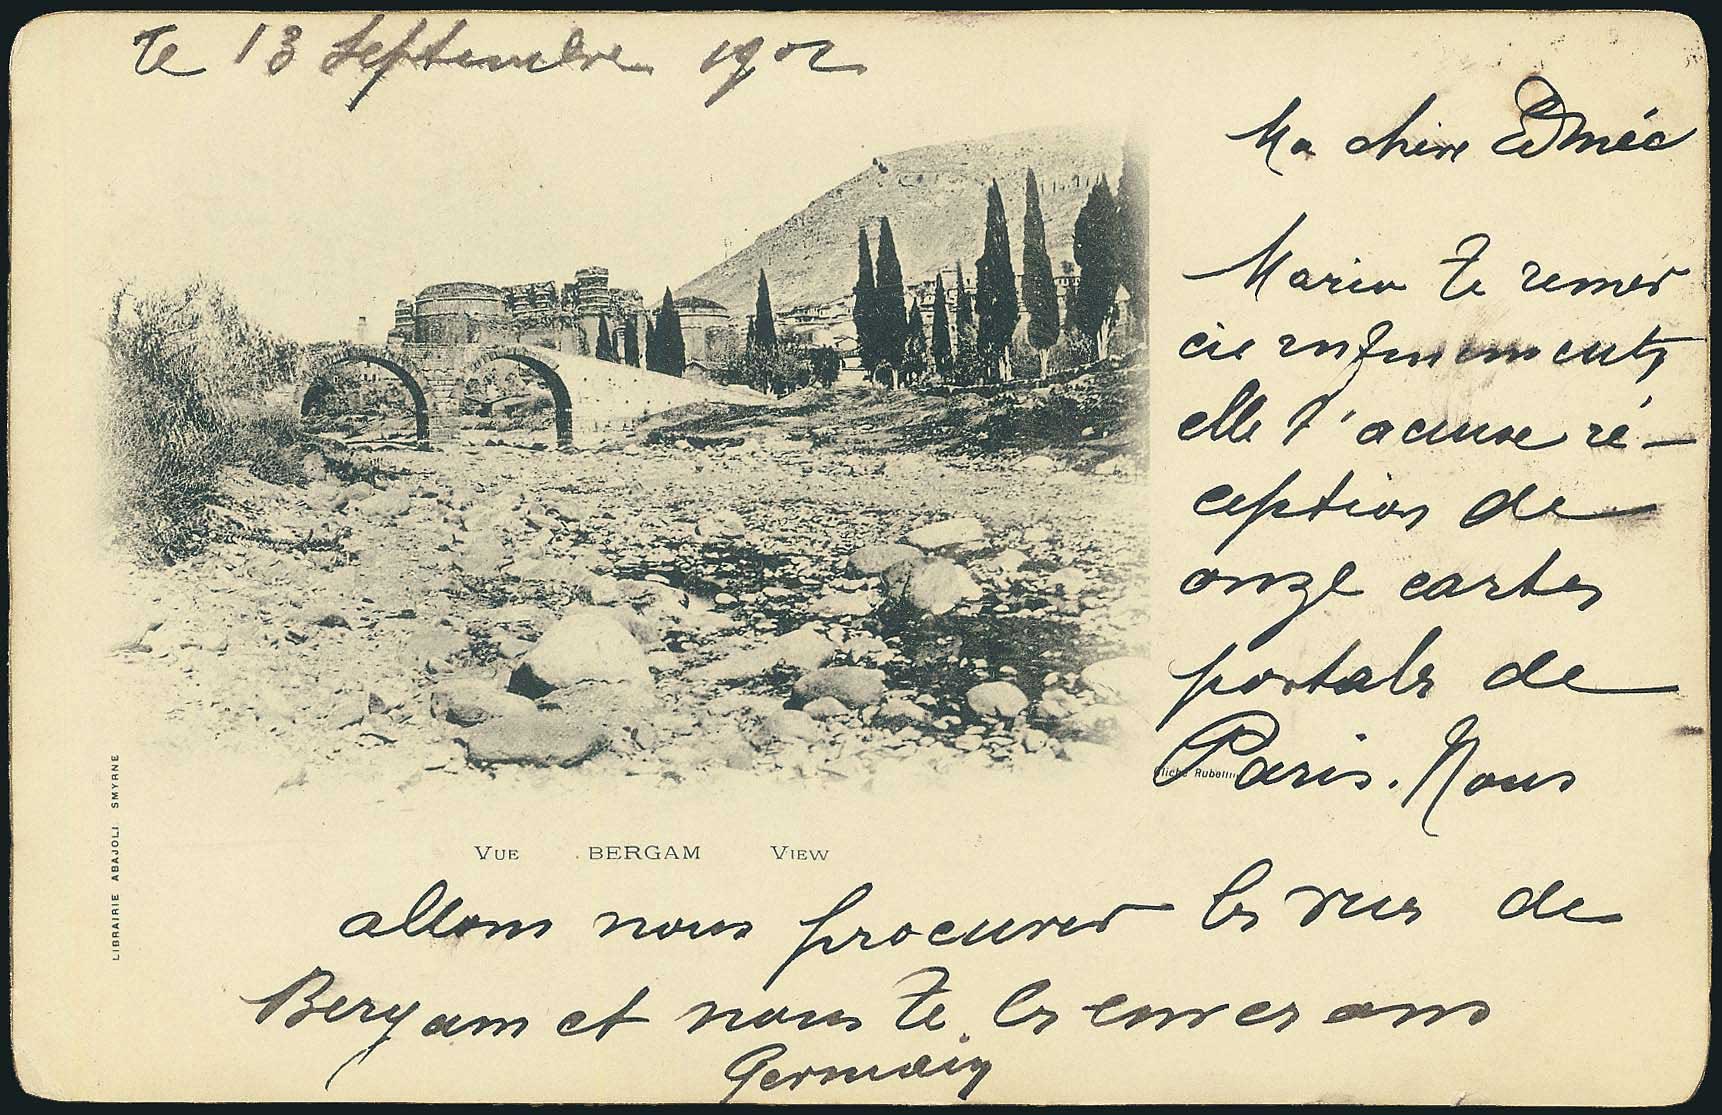 Le 13 Septembre 1902
Ma chère Edmée
Maria te remer
cie infiniment,
elle t'accuse ré-
ception de
onze cartes
postales de
Paris. Nous
Cliché Rubellin
VUE BERGAM VIEW
LIBRAIRIE ABAJOLI SMYRNE
allons nous procurer les vues de
Bergam et nous te les enverrons
Germain